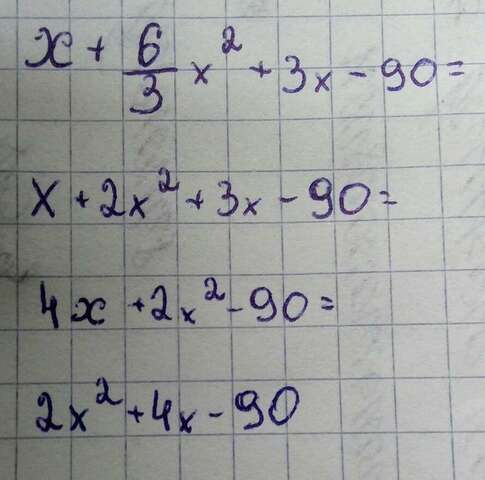 x + 6/3 x² + 3x - 90 =
x + 2x² + 3x - 90 =
4x + 2x² - 90 =
2x² + 4x - 90